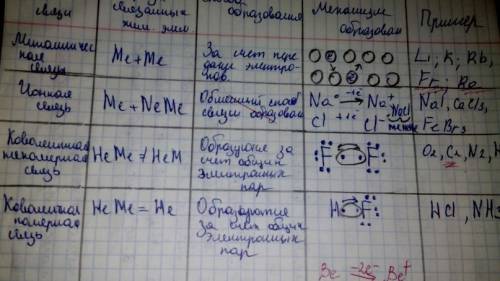 связи
связанных
хим. элем
образования
Механизм
образован
Пример
Металличес
кая
связь
Me + Me
За счет пере
дачи электро-
нов.
Li, K, Rb,
Fr, Ra
Ионная
связь
Me + NeMe
связи образован
Na -1e Na+
Cl +1e Cl-
NaCl
NaI, CaCl3,
FeBr3
Ковалентная
неполярная
связь
НеМе ≠ НеМ
Образующие за
счет общих
электронных
пар
F F
O2, Cl, N2, H
Ковалентная
полярная
связь
НеМе = Не
за счет общих
электронных
пар
H F
HCl, NH3
Be -2e- Be+